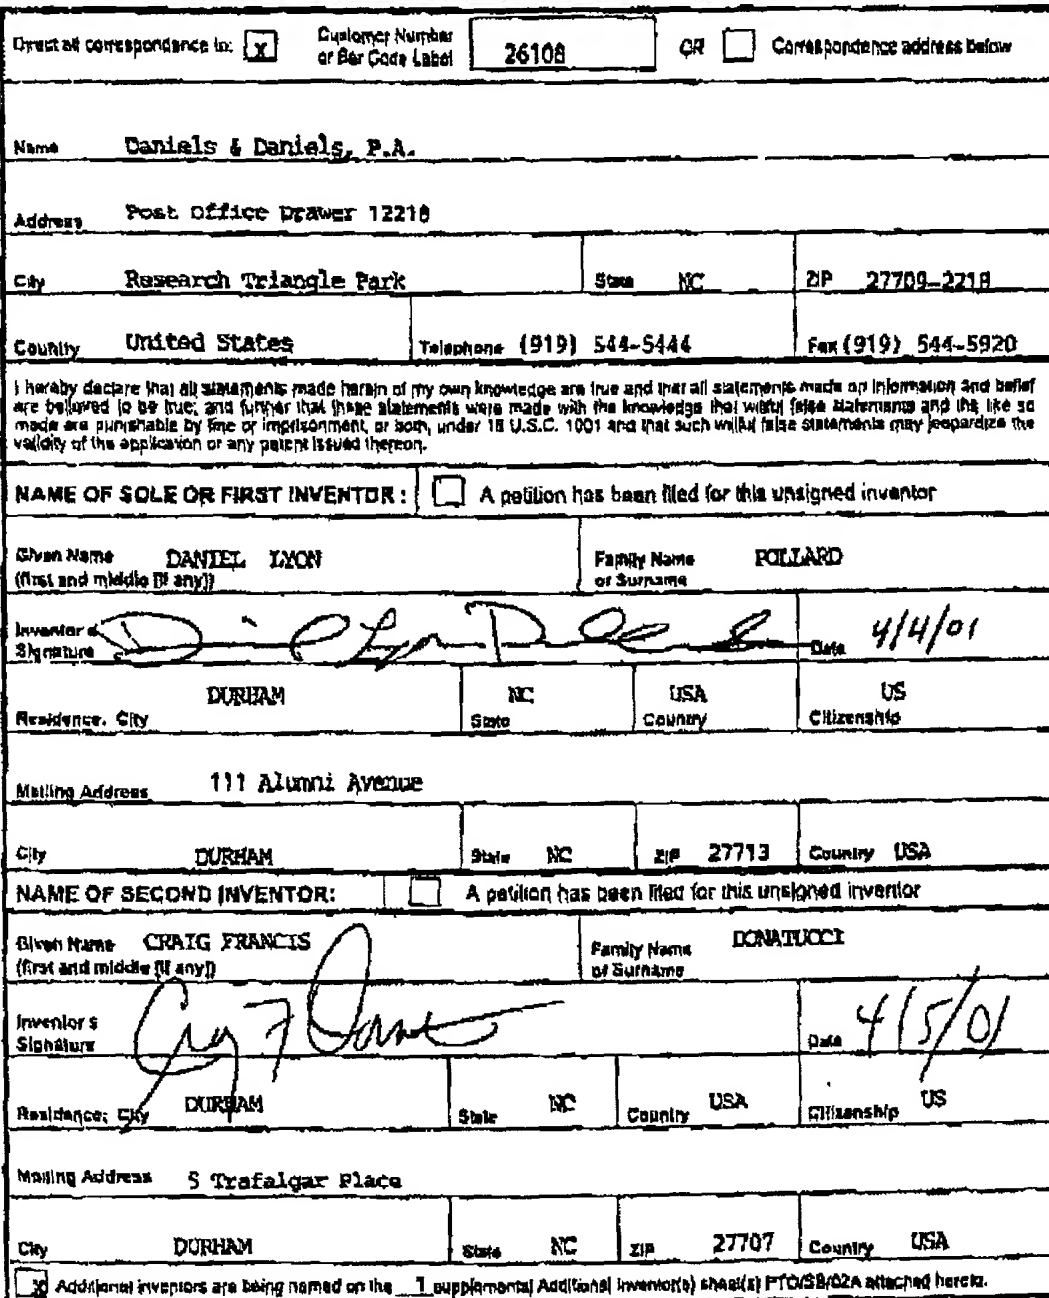 Direct all correspondence to: [x] Customer Number or Bar Code Label 26108 OR [ ] Correspondence address below
Name Daniels & Daniels, P.A.
Address Post Office Drawer 12218
City Research Triangle Park State NC ZIP 27709-2218
Country United States Telephone (919) 544-5444 Fax (919) 544-5920
I hereby declare that all statements made herein of my own knowledge are true and that all statements made on information and belief
are believed to be true; and further that these statements were made with the knowledge that willful false statements and the like so
made are punishable by fine or imprisonment, or both, under 18 U.S.C. 1001 and that such willful false statements may jeopardize the
validity of the application or any patent issued thereon.
NAME OF SOLE OR FIRST INVENTOR: [ ] A petition has been filed for this unsigned inventor
Given Name (first and middle [if any]) DANIEL LYON Family Name or Surname POLLARD
Inventor's Signature Daniel Lyon Pollard Date 4/4/01
Residence: City DURHAM State NC Country USA Citizenship US
Mailing Address 111 Alumni Avenue
City DURHAM State NC ZIP 27713 Country USA
NAME OF SECOND INVENTOR: [ ] A petition has been filed for this unsigned inventor
Given Name (first and middle [if any]) CRAIG FRANCIS Family Name or Surname DONATUCCI
Inventor's Signature Date 4/5/01
Residence: City DURHAM State NC Country USA Citizenship US
Mailing Address 5 Trafalgar Place
City DURHAM State NC ZIP 27707 Country USA
[x] Additional inventors are being named on the 1 supplemental Additional Inventor(s) sheet(s) PTO/SB/02A attached hereto.